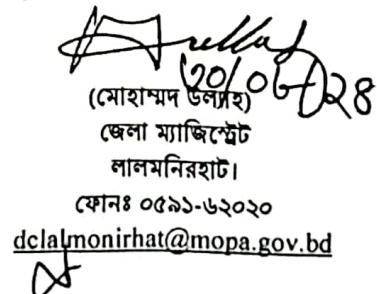 (মোহাম্মদ উল্যাহ)
জেলা ম্যাজিস্ট্রেট
লালমনিরহাট।
ফোনঃ ০৫৯১-৬২০২০
dclalmonirhat@mopa.gov.bd